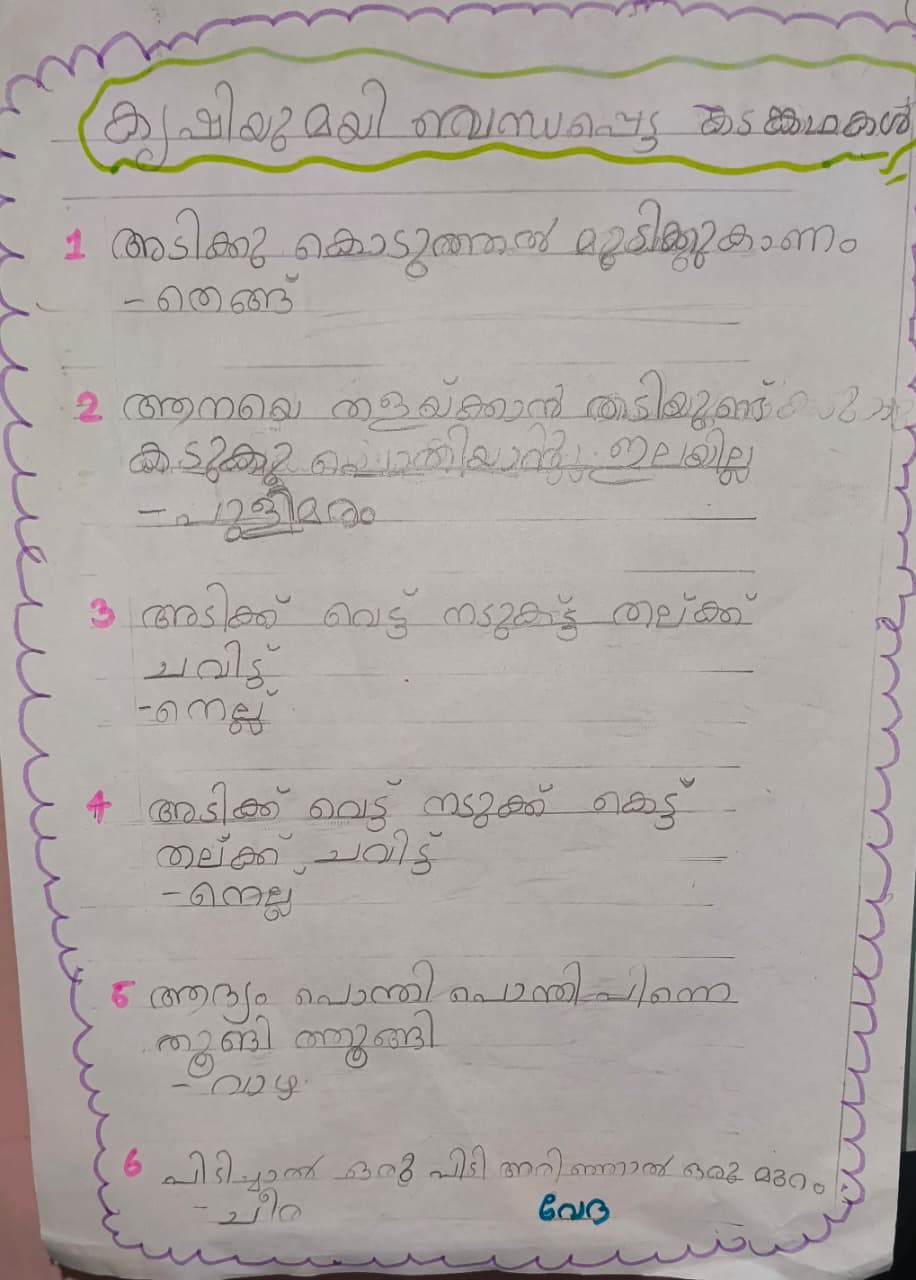 കൃഷിയുമയി ബന്ധപ്പെട്ട കടങ്കഥകൾ
1 അടിക്കു കൊടുത്താൽ മുടിക്കുകാണം
-തെങ്ങ്
2 ആനയെ തളയ്ക്കാൻ തടിയുണ്ട്
കടുക്കു പൊതിയാനു ഇലയില്ല
-പുളിമരം
3 അടിക്ക് വെട്ട് നടുകട്ട് തല്ക്ക്
ചവിട്ട്
-നെല്ല്
4 അടിക്ക് വെട്ട് നടുക്ക് കെട്ട്
തല്ക്ക് ചവിട്ട്
-നെല്ല്
5 ആദ്യം പൊന്തി പൊന്തി പിന്നെ
തൂങ്ങി തൂങ്ങി
-വാഴ
6 പിടിച്ചാൽ ഒരു പിടി അറിഞ്ഞാൽ ഒരു മുറം
-ചീര
വേദ